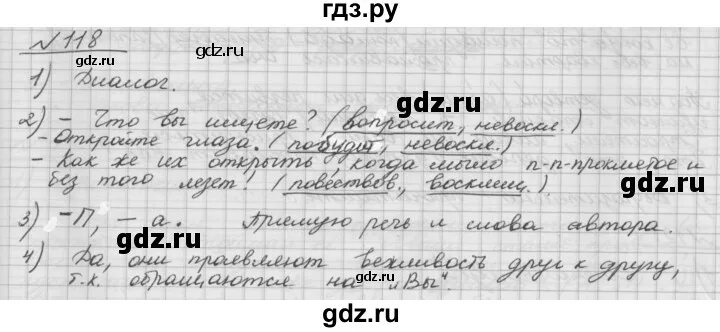 гдз.ру
№ 118
1) Диалог.
2) – Что вы ищете? (вопросит., невоскл.)
– Откройте глаза. (побудит, невоскл.)
– Как же их открыть, когда мыло п-п-проклятое и
без того лезет! (повествов., восклиц.).
3) – П, – а. Прямую речь и слова автора.
4) Да, они проявляют вежливость друг к другу,
т.к. обращаются на „Вы".
gdz.ru